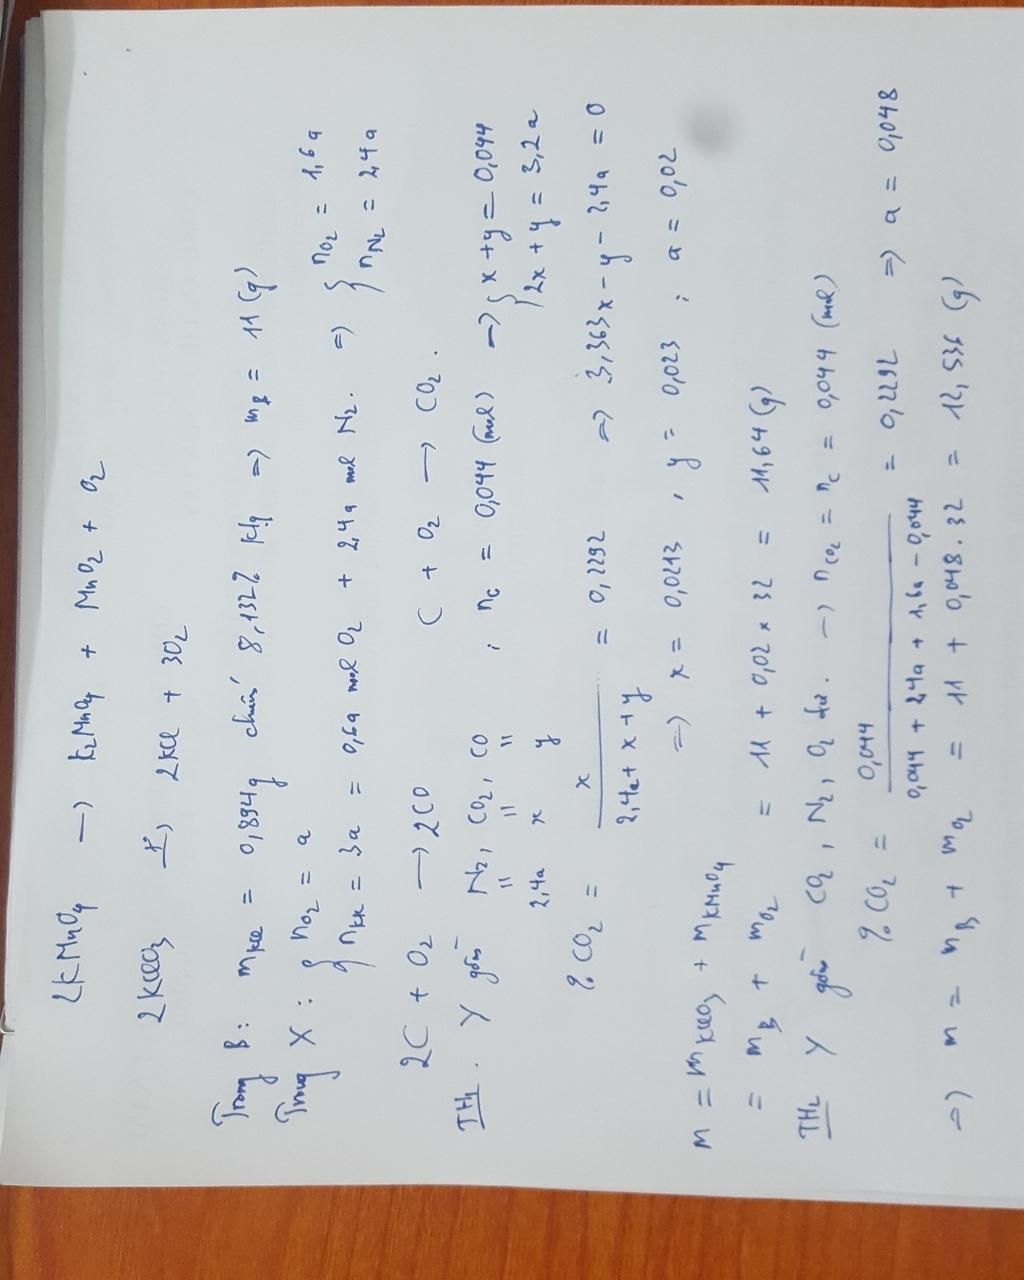 2KMnO4 → K2MnO4 + MnO2 + O2
2KClO3 t°→ 2KCl + 3O2
Trong B: mKCl = 0,894g chiếm 8,132% klg ⇒ mB = 11 (g)
Trong X: { nO2 = a
nKK = 3a = 0,6a mol O2 + 2,4a mol N2. ⇒ { nO2 = 1,6a
nN2 = 2,4a
2C + O2 → 2CO C + O2 → CO2.
TH1. Y gồm N2, CO2, CO ; nC = 0,044 (mol) → { x + y = 0,044
2x + y = 3,2a
2,4a x y
% CO2 = x / (2,4a + x + y) = 0,2292 ⇒ 3,363x - y - 2,4a = 0
⇒ x = 0,0213 , y = 0,023 ; a = 0,02
m = mKClO3 + mKMnO4
= mB + mO2 = 11 + 0,02 x 32 = 11,64 (g)
TH2 Y gồm CO2, N2, O2 dư. → nCO2 = nC = 0,044 (mol)
% CO2 = 0,044 / (0,044 + 2,4a + 1,6a - 0,044) = 0,2292 ⇒ a = 0,048
⇒ m = mB + mO2 = 11 + 0,048.32 = 12,536 (g)